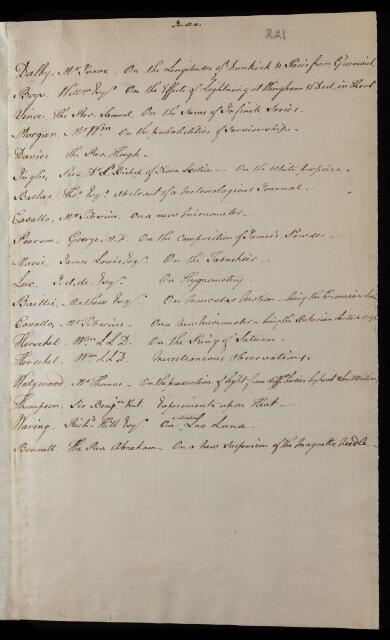 Index.
221
Dalby, Mr Isaac. On the Longitudes of Dunkirk & Paris from Greenwich
Boys. Willm Esqr. On the Effects of Lightning at Wingham & Deal, in Kent
Vince, the Rev. Samuel, On the Sums of Infinite Series.
Morgan, Mr Wm On the probabilities of Survivorships.
Davies the Rev. Hugh.
Inglis, Bishop of Nova Scotia. On the White porpoise.
Barker Thos. Esqr. Abstract of a Meteorological Journal.
Cavallo, Mr Tiberius. On a new Micrometer.
Pearson, George, M.D. On the Composition of James's Powder
Macie James Louis Esqr. On the Tabasheer
Luc, J. A. de Esqr. On Hygrometry.
Baillie, Mathew Esqr. On Muscular Motion being the Croonian Lect
Cavallo, Mr Tiberius. On a new Micrometer being the Bakerian Lecture
Herschel Wm L.L.D. On the Ring of Saturn.
Herschel Wm L.L.D. Miscellaneous Observations.
Wedgwood. Mr Thomas. On the production of light from difft bodies by heat & by attrition
Thompson, Sir Benjn Knt. Experiments upon Heat.
Waring, Richd Hill Esqr. On Lac Lunæ
Bennett, The Rev Abraham. On a New Suspension of the Magnetic Needle